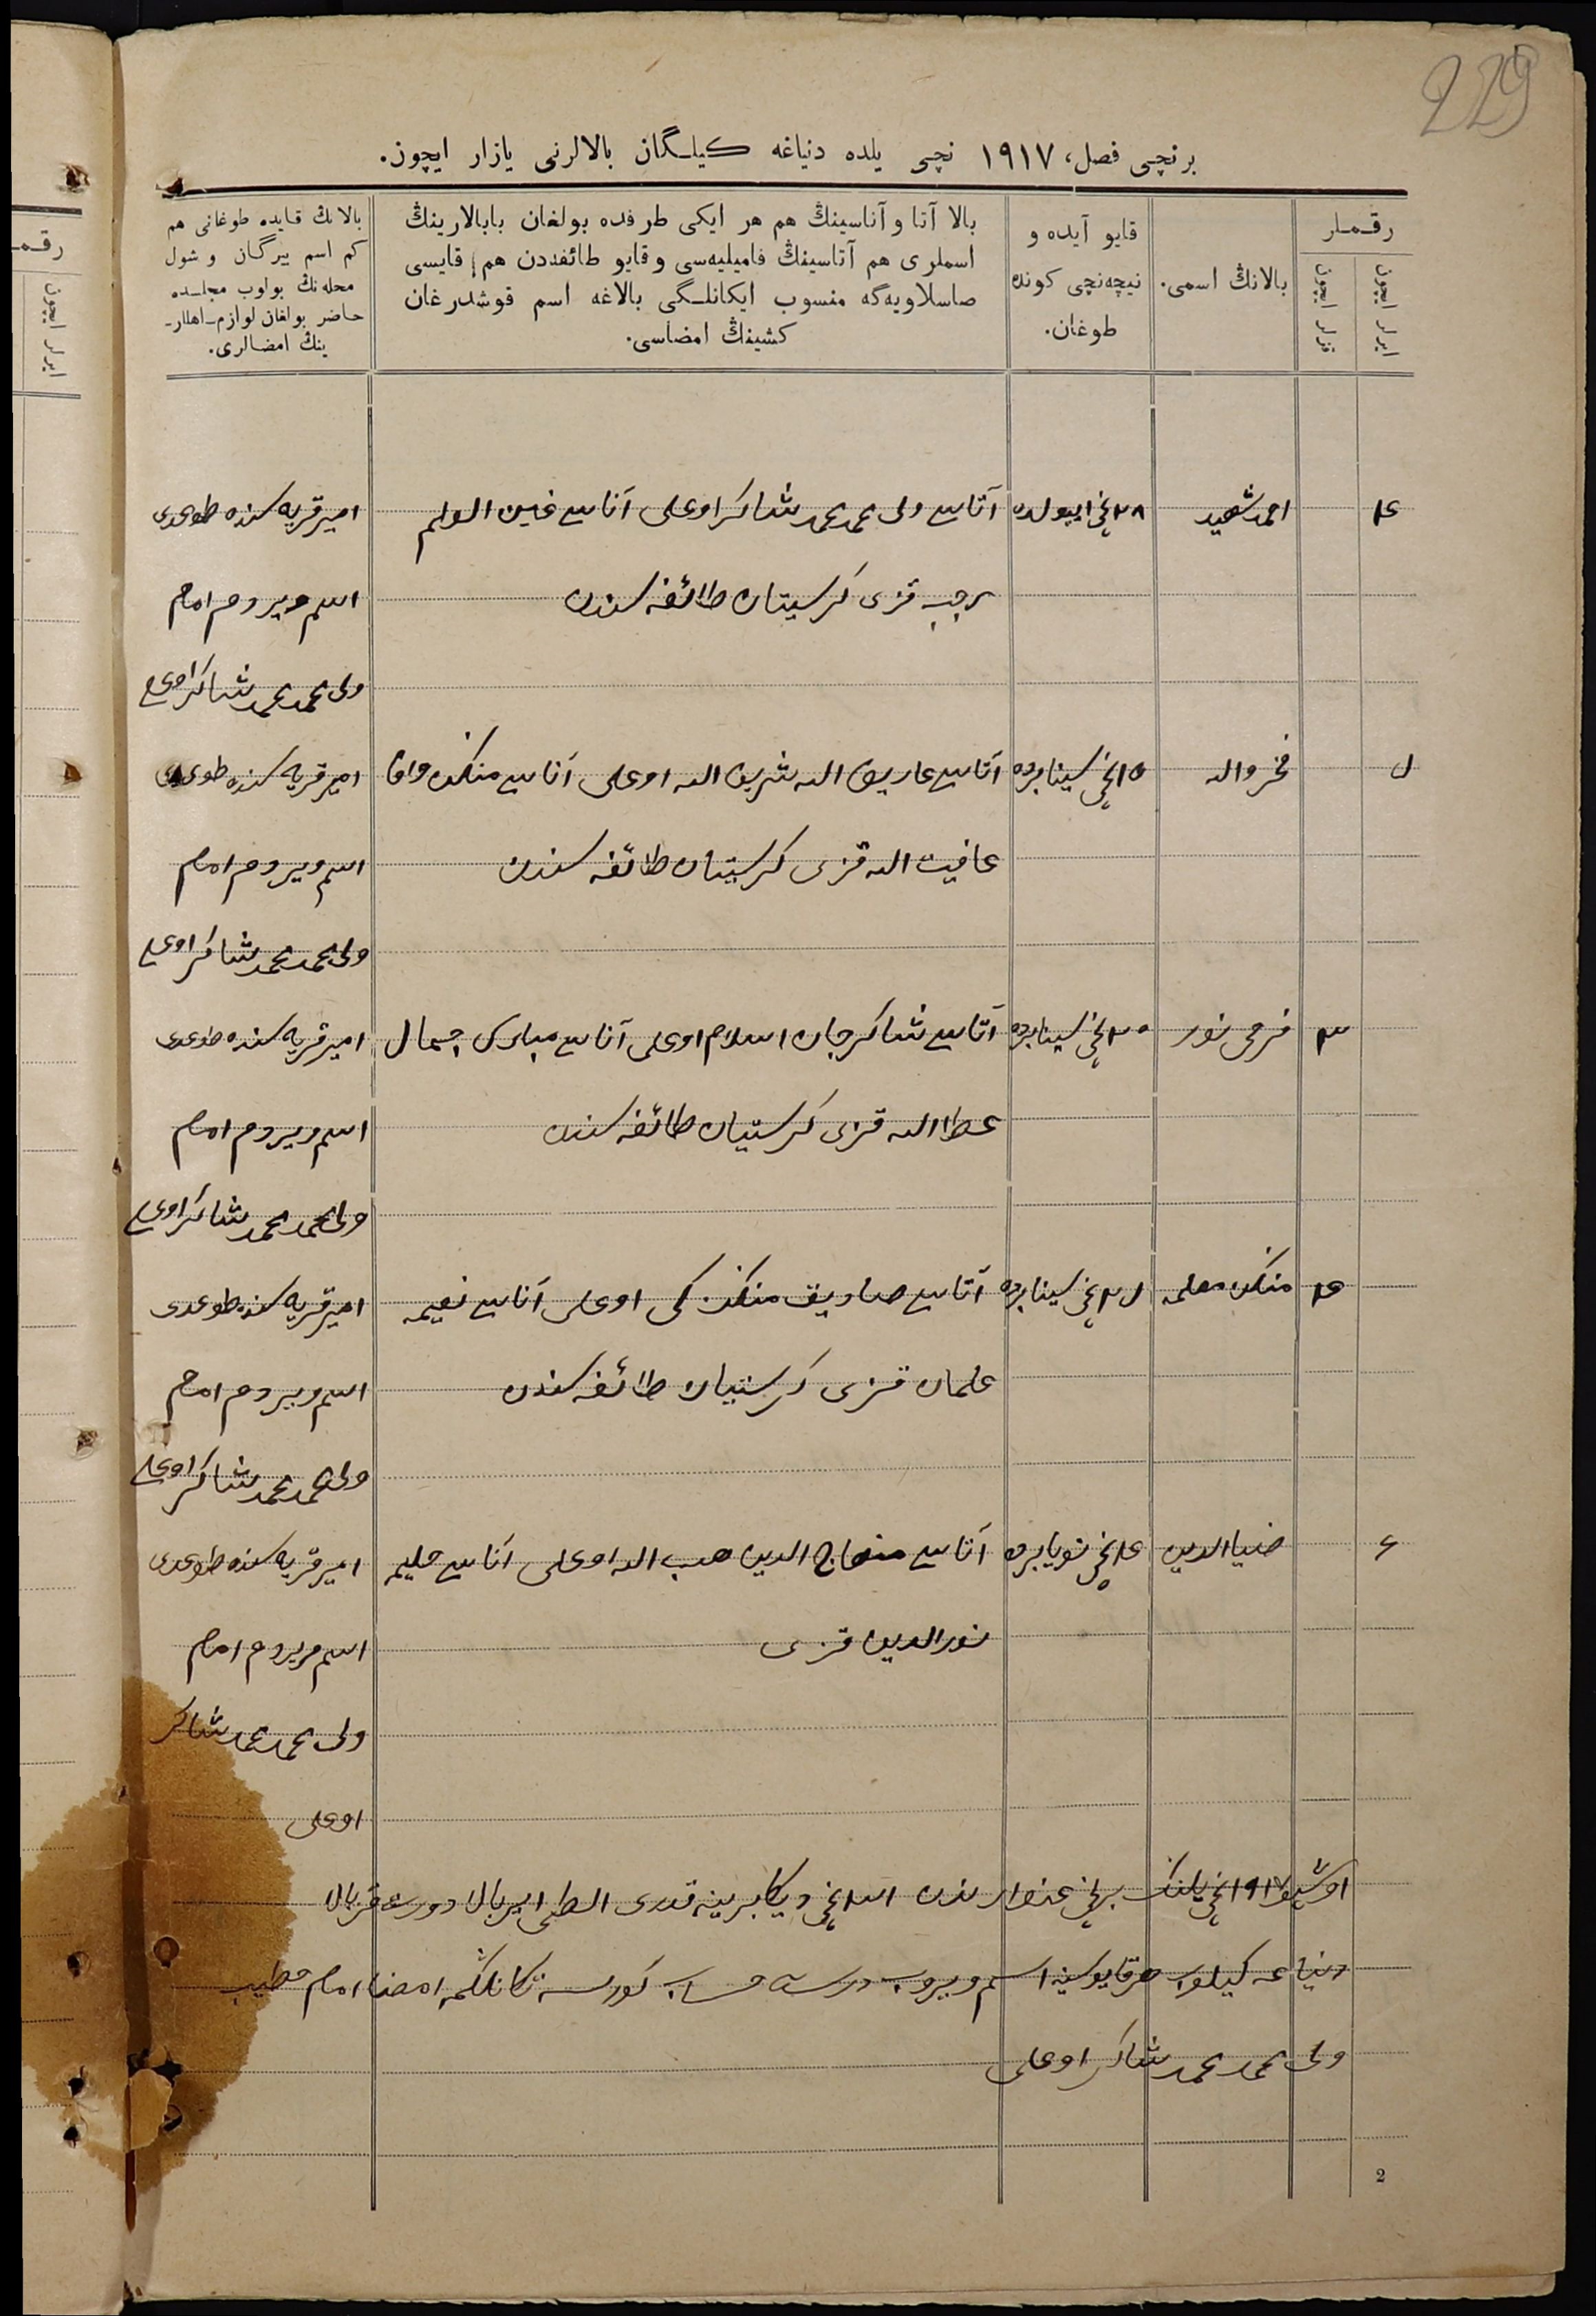 229
برنچی فصل، ١٩١٧ نچی یلده دنیاغه کیلـگان بالالرنی یازار ایچون.
رقـمـلر
ایرلر ایچون
قزلر ایچون
بالانڭ اسمی.
قایو آیده و نیچه‌نچی کونده طوغان.
بالا آتا و آناسینڭ هم هر ایکی طرفده بولغان بابالارینڭ
اسملری هم آتاسینڭ فامیلیه‌سی و قایو طائفه‌دن هم قایسی
صاسلاویه‌گه منسوب ایکانلـگی بالاغه اسم قوشدرغان
کشینڭ امضاسی.
بالانڭ قایده طوغانی هم
کم اسم بیرگان و شول
محله‌نڭ بولوب مجلسده
حاضر بولغان لوازم ـ اهللار ـ
ینڭ امضالری.
٤ احمد شهید ٢٨ نچی اییولده آتاسی ولی محمد محمد شاکر اوغلی آناسی امیر قریه سنده طوغدی
رجب قزی کرستیان طائفه سندن اسم ویردم امام
ولی محمد محمد شاکر اوغلی
٥ فخر والله ١٥ نچی سینتابرده آتاسی عاریف الله شریف الله اوغلی آناسی امیر قریه سنده طوغدی
عافیت الله قزی کرستیان طائفه سندن اسم ویردم امام
ولی محمد محمد شاکر اوغلی
٣ فرحی نور ٢٥ نچی سینتابرده آتاسی شاکرجان اسلام اوغلی آناسی مبارک جمال امیر قریه سنده طوغدی
عطا الله قزی کرستیان طائفه سندن اسم ویردم امام
ولی محمد محمد شاکر اوغلی
٤ معلمه نچی سینتابرده آتاسی صادیق اوغلی آناسی نعیمه امیر قریه سنده طوغدی
علمان قزی کرستیان طائفه سندن اسم ویردم امام
ولی محمد محمد شاکر اوغلی
٦ ضیا الدین ١٤ نچی نویابرده آتاسی منهاج الدین حبیب الله اوغلی آناسی حلیمه امیر قریه سنده طوغدی
نور الدین قزی اسم ویردم امام
ولی محمد محمد شاکر
اوغلی
اوشبو ١٩١٧ نچی یلنڭ برنچی غنوارندن ٣١ نچی دیکابرینه قدری الطی ایر بالا دورت قز بالا
دنیاغه کیلوب هر قایوسینه اسم ویروب درست حساب امضا امام خطیب
ولی محمد محمد شاکر اوغلی
2
رقـمـ
ایرلر ایچون